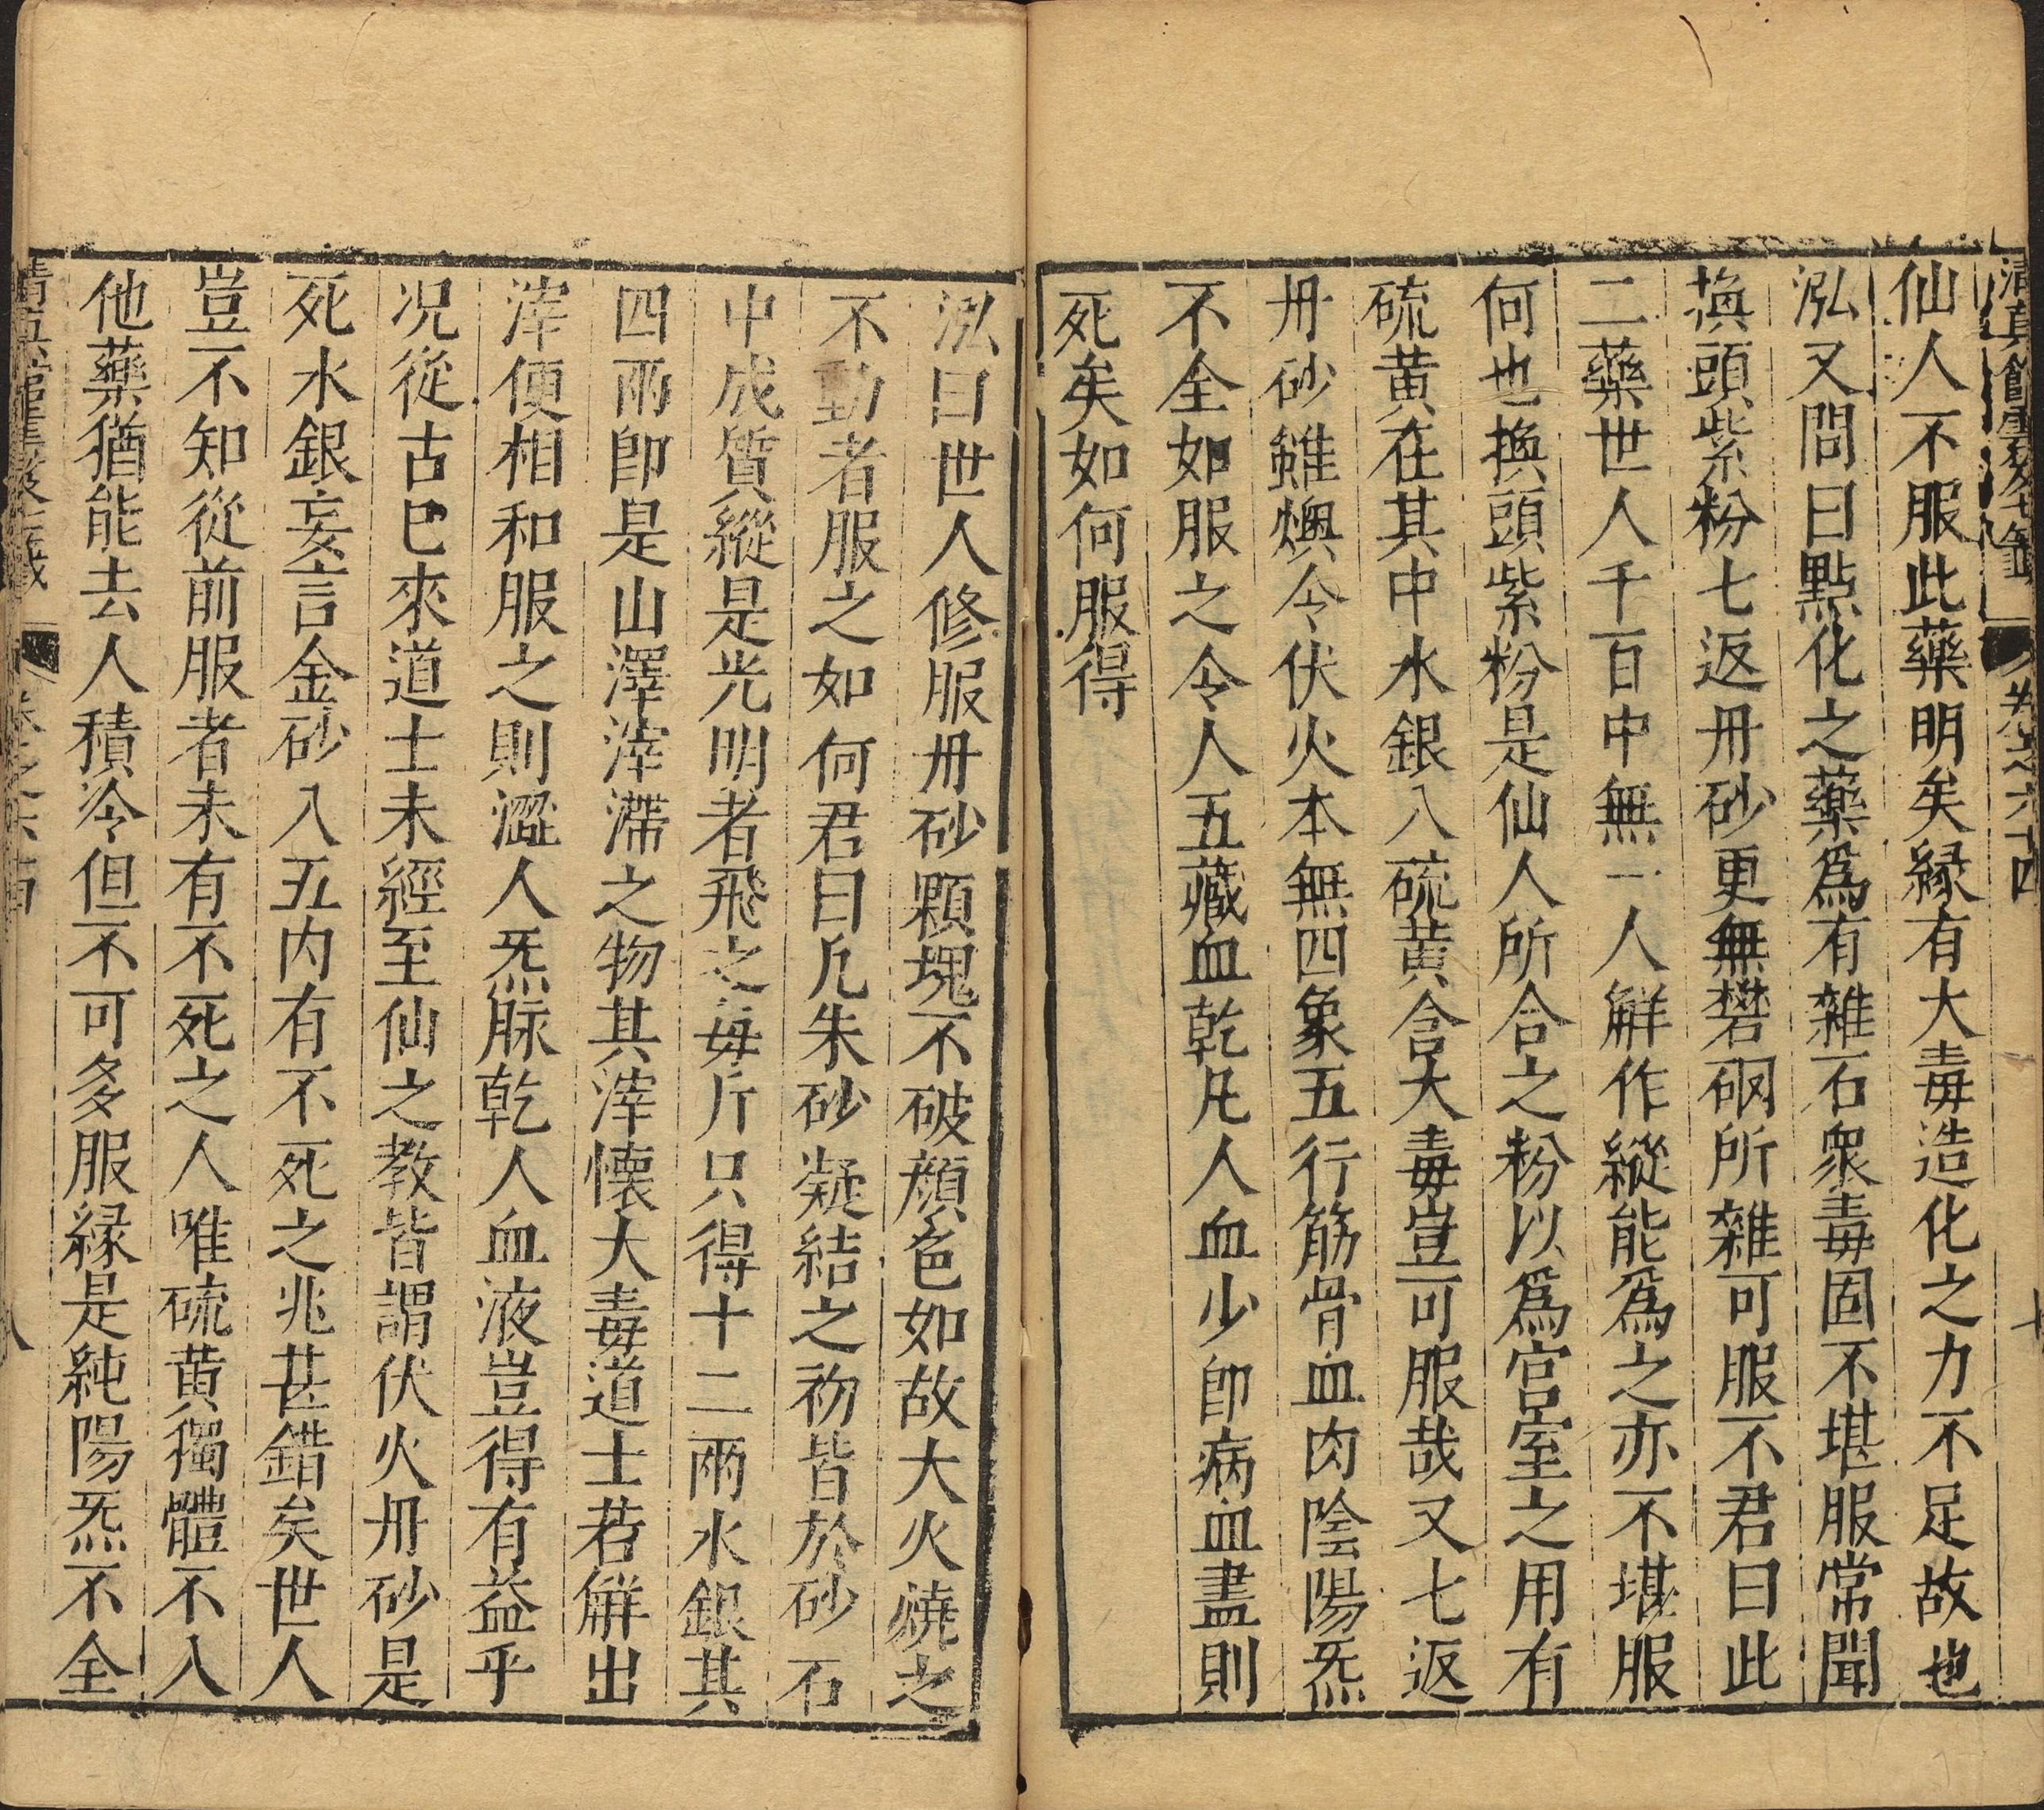 清真館雲笈七籤 卷之六十四 七
仙人不服此藥明矣緣有大毒造化之力不足故也
泓又問曰點化之藥爲有雜石衆毒固不堪服常聞
換頭紫粉七返丹砂更無礬硇所雜可服不君曰此
二藥世人千百中無一人解作縱能爲之亦不堪服
何也換頭紫粉是仙人所合之粉以爲宮室之用有
硫黃在其中水銀入硫黃含大毒豈可服哉又七返
丹砂雖燠令伏火本無四象五行筋骨血肉陰陽炁
不全如服之令人五藏血乾凡人血少卽病血盡則
死矣如何服得
泓曰世人修服丹砂顆塊不破顏色如故大火燒之
不動者服之如何君曰凡朱砂凝結之初皆於砂石
中成質縱是光明者飛之每斤只得十二兩水銀其
四兩卽是山澤滓滯之物其滓懷大毒道士若解出
滓便相和服之則澀人炁脉乾人血液豈得有益乎
况從古已來道士未經至仙之教皆謂伏火丹砂是
死水銀妄言金砂入五内有不死之兆甚錯矣世人
豈不知從前服者未有不死之人唯硫黃獨體不入
他藥猶能去人積冷但不可多服緣是純陽炁不全
清真館雲笈七籤 卷之六十四 八